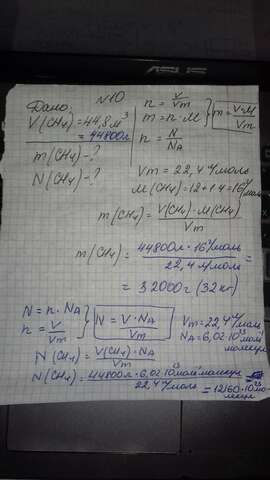 ASUS
№10
Дано:
V(CH4)=44,8м³
=44800л
m(CH4)-?
N(CH4)-?
n=V/Vm
m=n·M } m=V·M/Vm
n=N/NA
Vm=22,4 л/моль
M(CH4)=12+1·4=16 г/моль
m(CH4)=V(CH4)·M(CH4)/Vm
m(CH4)=44800л·16г/моль/22,4 л/моль=
=32000г (32кг)
N=n·NA
n=V/Vm } N=V·NA/Vm
Vm=22,4 л/моль
NA=6,02·10²³
молекул
N(CH4)=V(CH4)·NA/Vm
N(CH4)=44800л·6,02·10²³молекул/22,4 л/моль=12160·10²³мо-
лекул